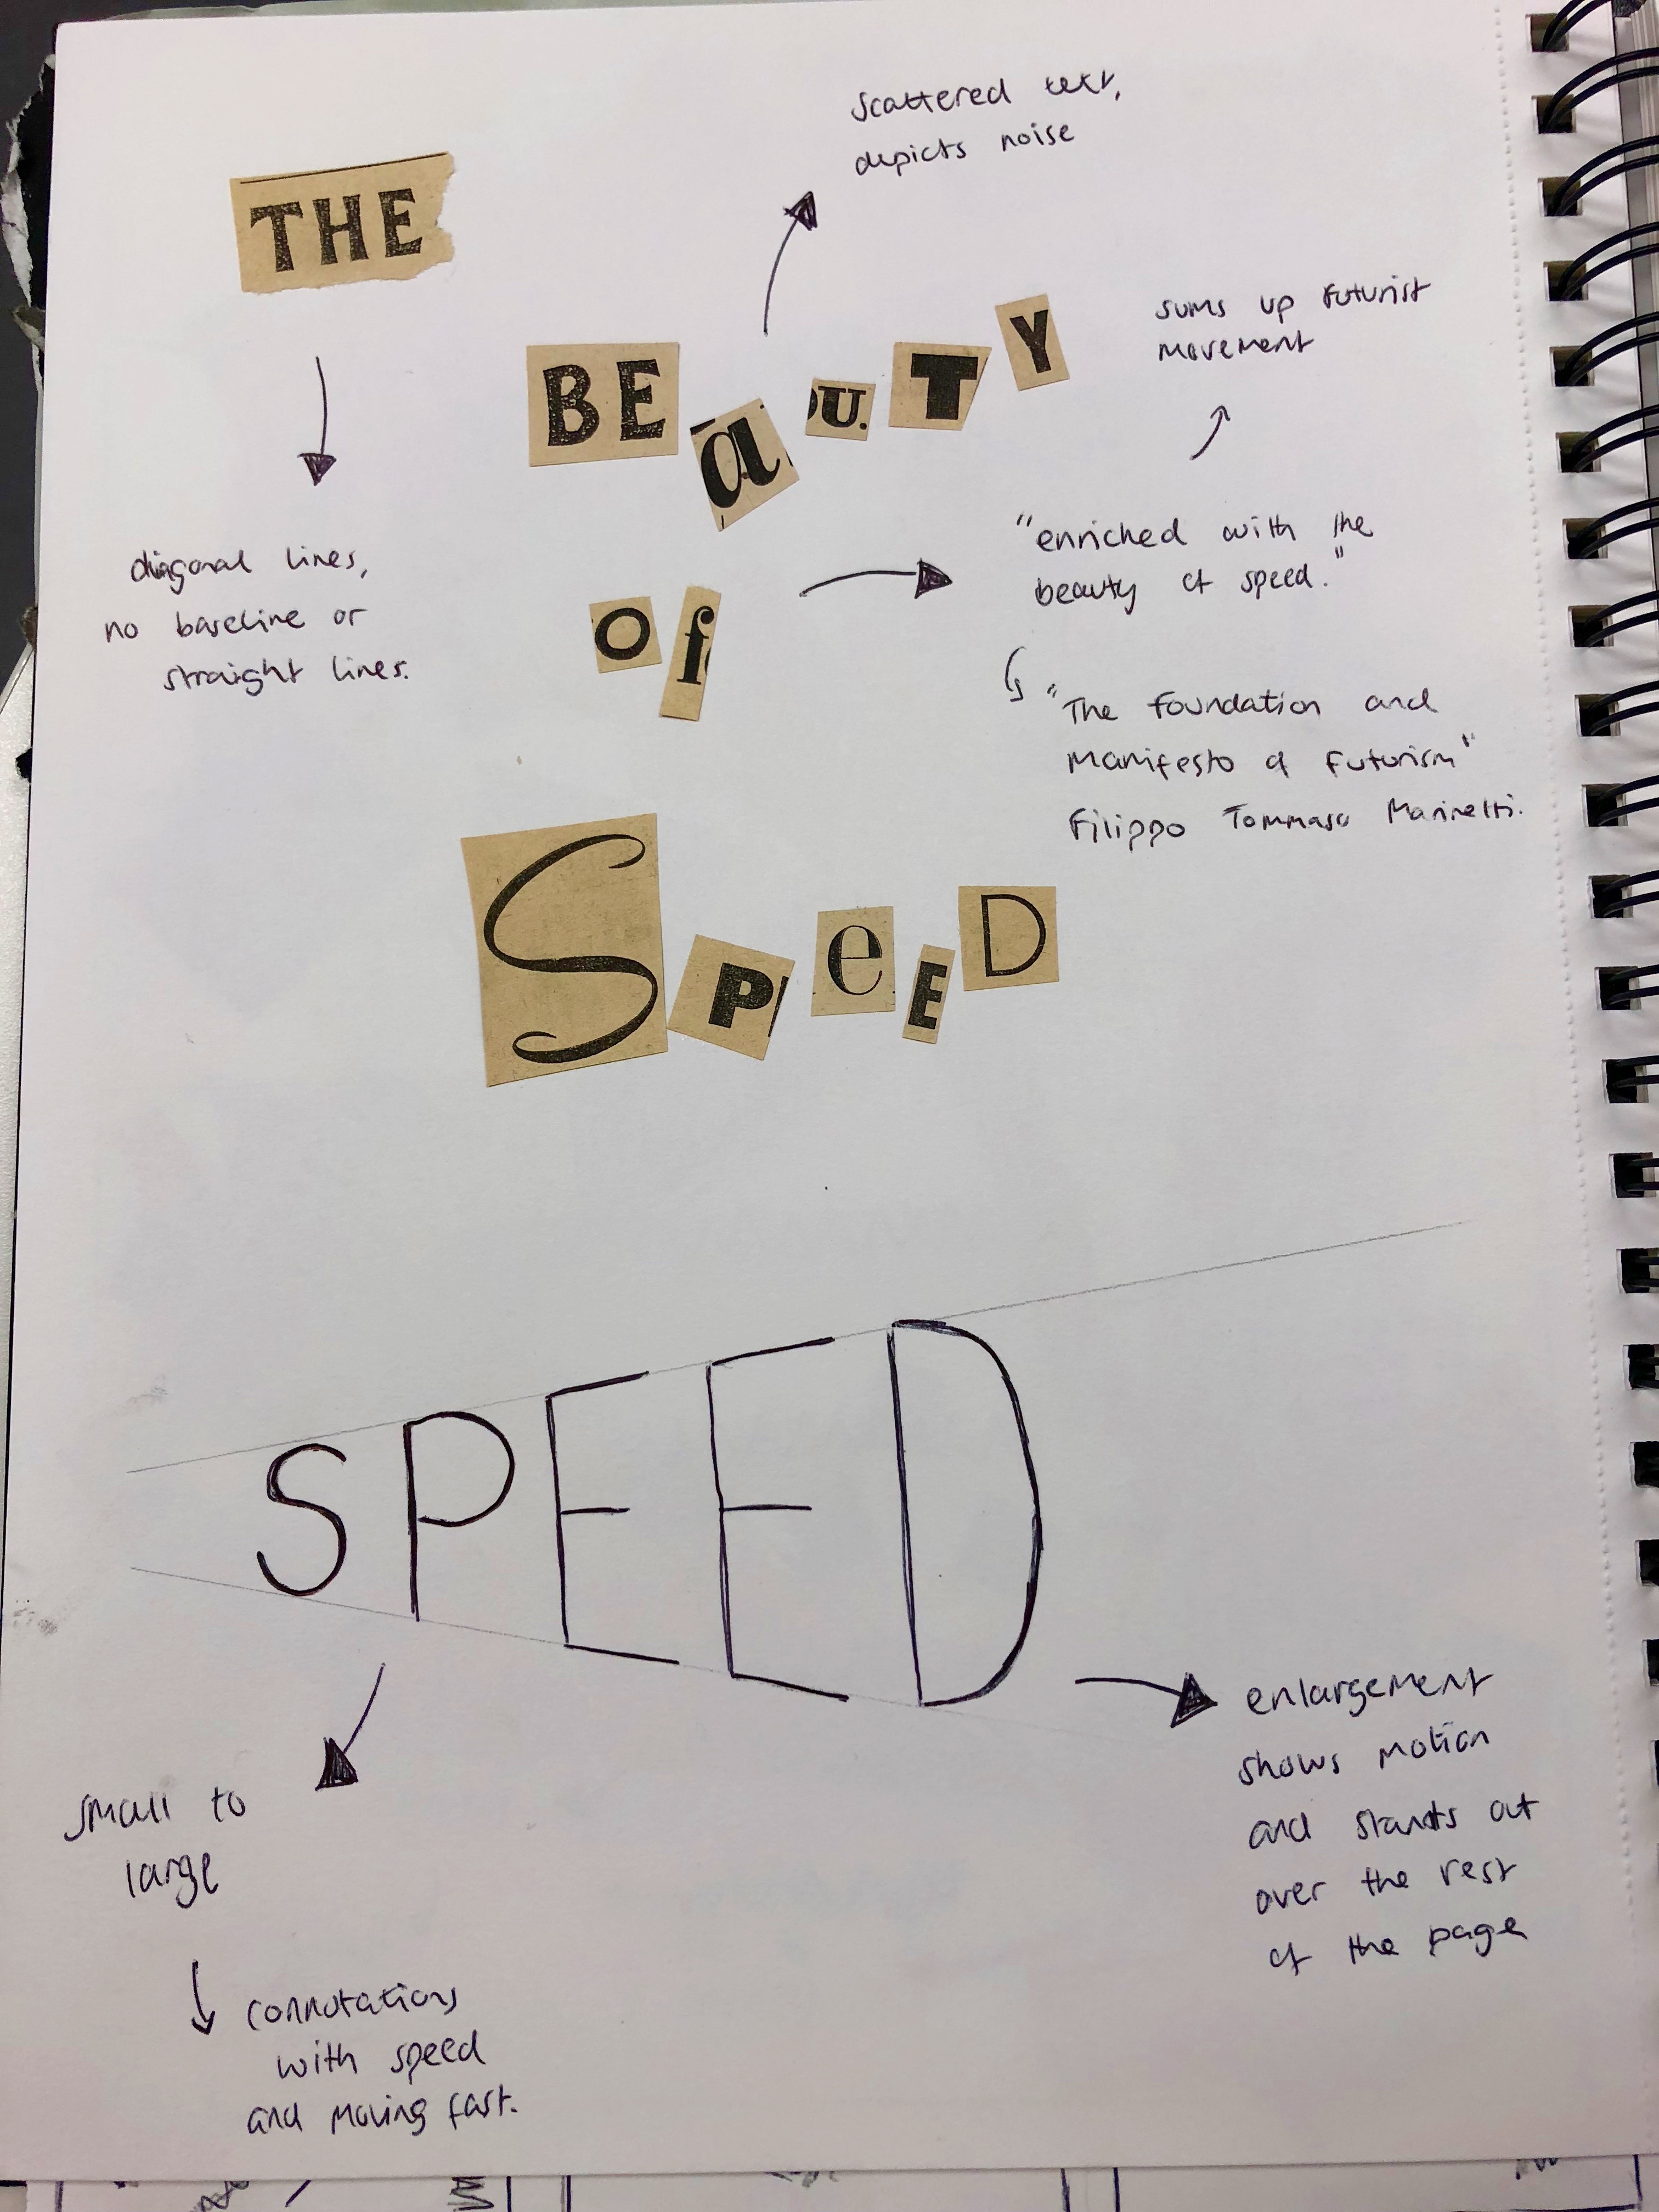 THE
scattered text,
depicts noise
BEaU.TY
sums up futurist
movement
diagonal lines,
no baseline or
straight lines.
"enriched with the
beauty of speed."
Of
"The foundation and
Manifesto of futurism"
Filippo Tommaso Marinetti.
SPeED
SPEED
small to
large
connotations
with speed
and moving fast.
enlargement
shows motion
and stands out
over the rest
of the page